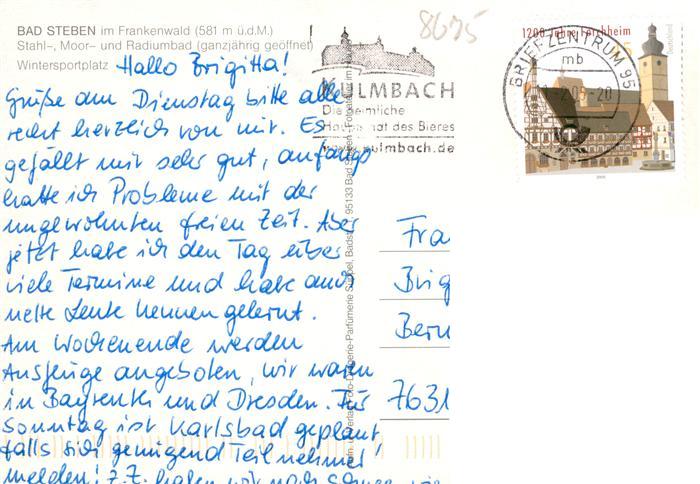 BAD STEBEN im Frankenwald (581 m ü.d.M.)
Stahl-, Moor- und Radiumbad (ganzjährig geöffnet)
Wintersportplatz
Hallo Brigitta!
Grüße am Dienstag bitte alle
recht herzlich von mir. Es
gefällt mir sehr gut, anfangs
hatte ich Probleme mit der
ungewohnten freien Zeit. Aber
jetzt habe ich den Tag über
viele Termine und habe auch
nette Leute kennen gelernt.
Am Wochenende werden
Ausflüge angeboten, wir waren
in Bayreuth und Dresden. Für
Sonntag ist Karlsbad geplant,
falls sich genügend Teilnehmer
melden! z.Z. haben wir noch Schnee
8675
KULMBACH
Die heimliche
Hauptstadt des Bieres
www.kulmbach.de
BRIEFZENTRUM 95
mb
2.05-20
1200 Jahre Forchheim
Deutschland
Fra
Brig
Bern
7631
95133 Bad Steben